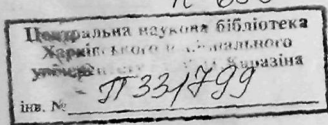 Центральна наукова бібліотека
Харківського національного
університету Каразіна
інв. № П331799